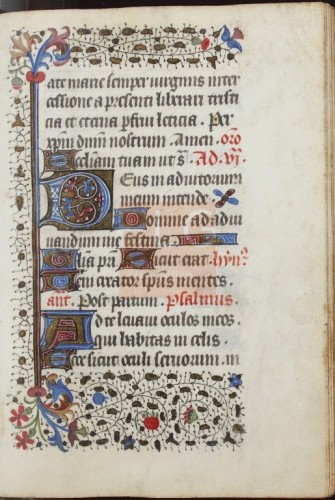 ate marie semper virginis inter
cessione a presenti liberari tristi
cia et eterna perfrui leticia. Per
xp̄m dn̄m nostrum. Amen. oro
Ecc̄liam tuam ut sͣ. Ad. vj.
Deus in adiutorium
meum intende
Domine ad adiu
uandum me festina.
Glia pr̄i Sicut erat. hỹn9.
Veni creator sp̄us mentes.
ant. Post partum. Psalmus.
Ad te levavi oculos meos.
qui habitas in celis.
Ecce sicut oculi servorum. in